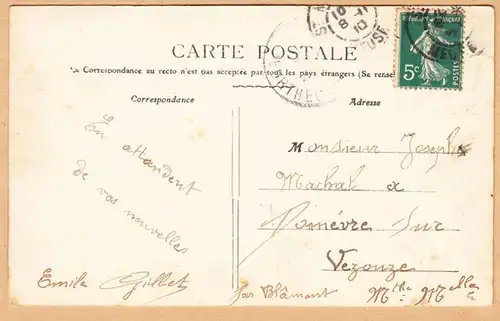 CARTE POSTALE
La Correspondance au recto n'est pas acceptée par tous les pays étrangers (Se rense
Correspondance
Adresse
RÉPUBLIQUE FRANÇAISE
5c
POSTES
8-11
10
En attendent
de vos nouvelles
Emile Gillet
Monsieur Joseph
Machal a
Domèvre sur
Vezouze
par Blâmont
Mthe Mzelle